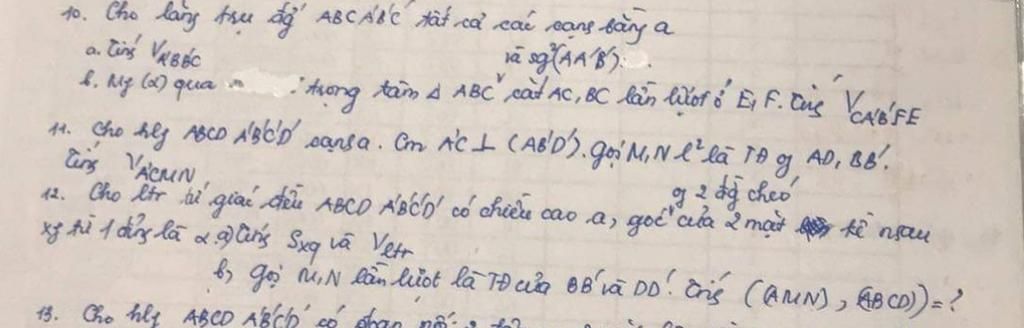 10. Cho lăng trụ đg' ABCA'B'C' tất cả các cạnh bằng a
a. Tính V A'BB'C và sg²(AA'B').
b. Mg (α) qua trọng tâm Δ ABC và cắt AC, BC lần lượt ở E, F. Tính V CA'B'FE
11. Cho hlg ABCD A'B'C'D' cạnh a. Cm A'C ⊥ (AB'D'). Gọi M, N l² là TĐ g AD, BB'.
Tính V A'CMN
g 2 đg chéo
12. Cho ltr tứ giác đều ABCD A'B'C'D' có chiều cao a, góc của 2 mặt kề nhau
xg từ 1 đỉnh là α a) Tính Sxq và Vltr
b, gọi M, N lần lượt là TĐ của BB' và DD'. Tính ((AMN), (ABCD)) = ?
13. Cho hlg ABCD A'B'C'D' có